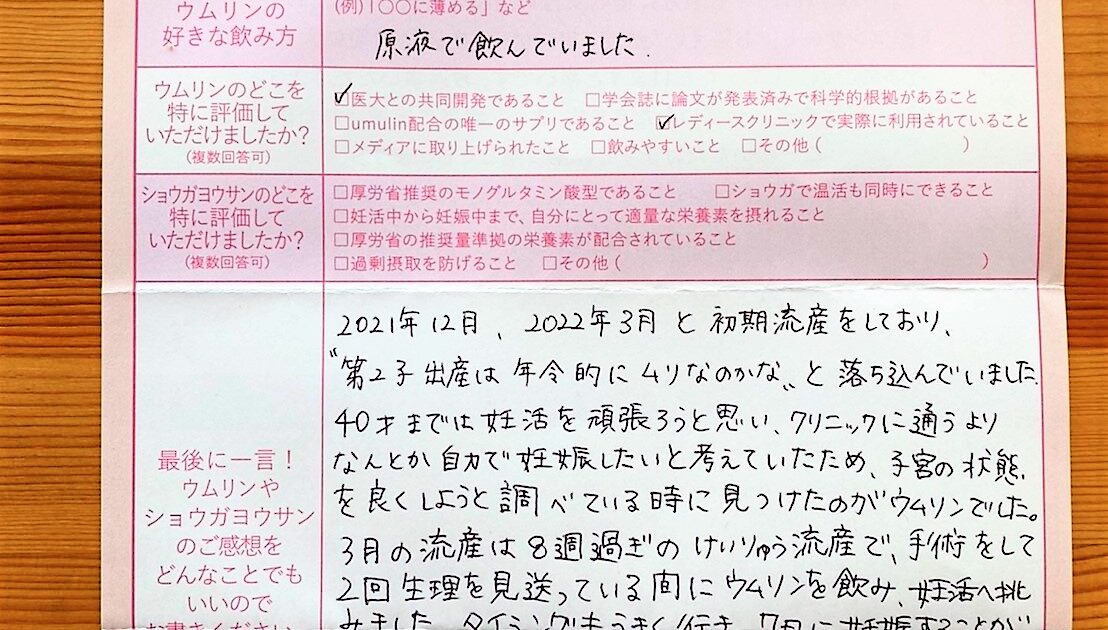 ウムリンの
好きな飲み方
(例)「〇〇に薄める」など
原液で飲んでいました.
ウムリンのどこを
特に評価して
いただけましたか?
(複数回答可)
☑医大との共同開発であること □学会誌に論文が発表済みで科学的根拠があること
□umulin配合の唯一のサプリであること ☑レディースクリニックで実際に利用されていること
□メディアに取り上げられたこと □飲みやすいこと □その他 ( )
ショウガヨウサンのどこを
特に評価して
いただけましたか?
(複数回答可)
□厚労省推奨のモノグルタミン酸型であること □ショウガで温活も同時にできること
□妊活中から妊娠中まで、自分にとって適量な栄養素を摂れること
□厚労省の推奨量準拠の栄養素が配合されていること
□過剰摂取を防げること □その他 ( )
最後に一言!
ウムリンや
ショウガヨウサン
のご感想を
どんなことでも
いいので
お書きください
2021年12月、2022年3月と初期流産をしており、
〝第2子出産は年令的にムリなのかな〟と落ち込んでいました.
40才までは妊活を頑張ろうと思い、クリニックに通うより
なんとか自力で妊娠したいと考えていたため、子宮の状態
を良くしようと調べている時に見つけたのがウムリンでした。
3月の流産は8週過ぎのけいりゅう流産で、手術をして
2回生理を見送っている間にウムリンを飲み、妊活へ挑
みました。タイミングもうまく行き、7月に妊娠することが